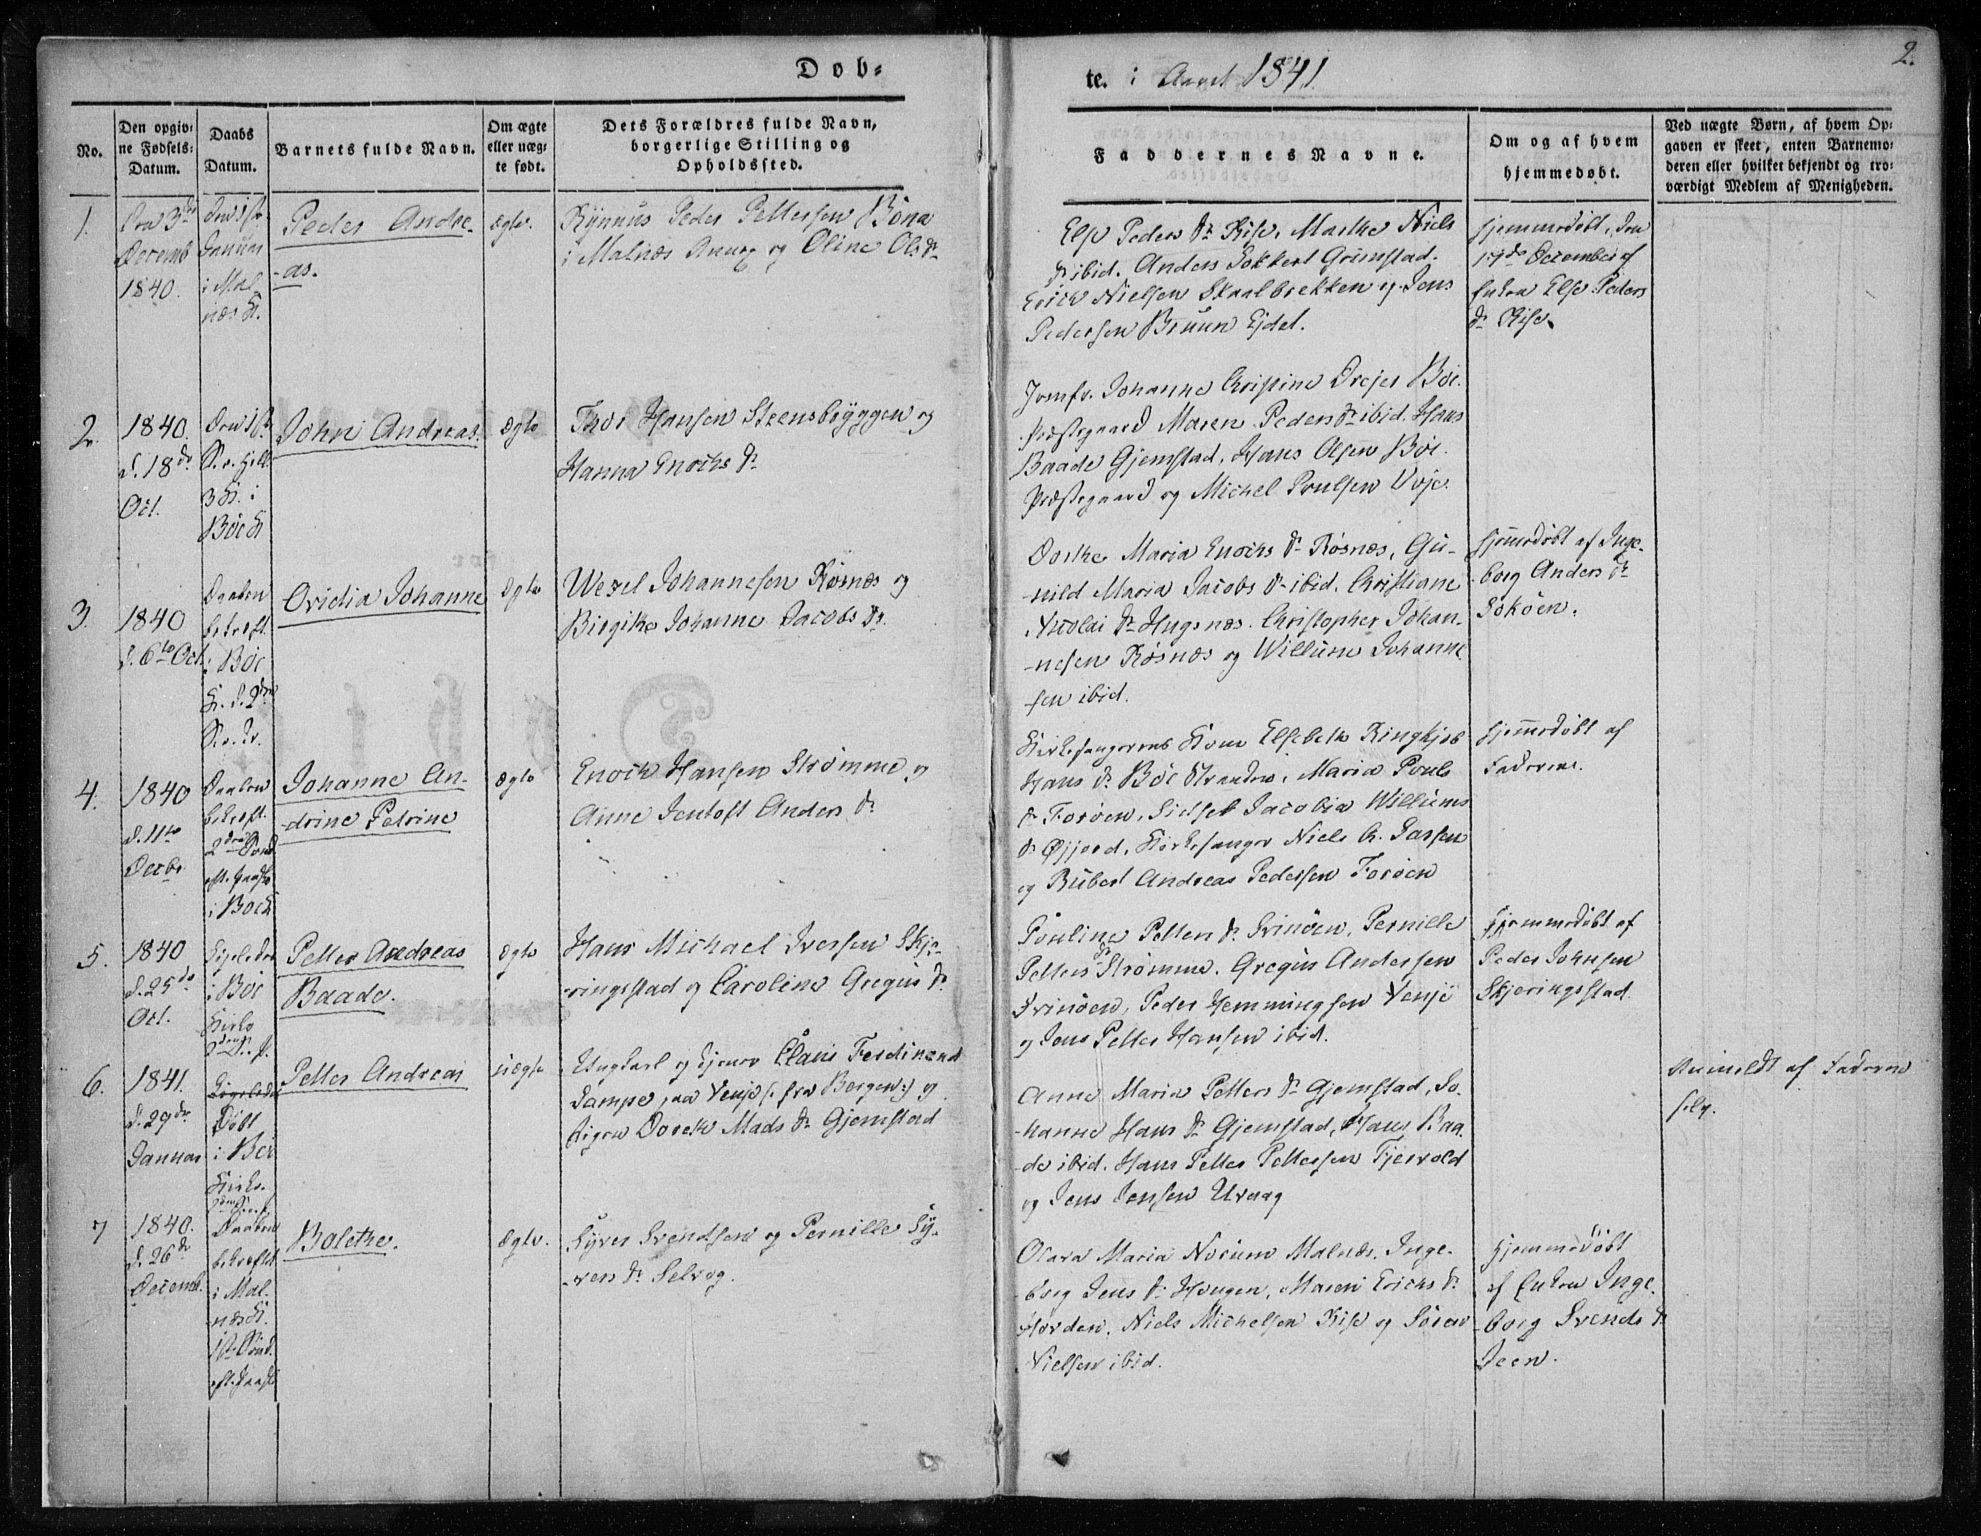 Døb-
te. i Aaret 1841.
2.
No.
Den opgiv-
ne Fødsels-
Datum.
Daabs
Datum.
Barnets fulde Navn.
Om ægte
eller uæg-
te født.
Dets Forældres fulde Navn,
borgerlige Stilling og
Opholdssted.
Faddernes Navne.
Om og af hvem
hjemmedøbt.
Ved uægte Børn, af hvem Op-
gaven er skeet, enten Barnemo-
deren eller hvilket bekjendt og tro-
værdigt Medlem af Menigheden.
1.
Den 3die
Decemb
1840.
Januar
i Mal-
næs K.
Peder Andre-
-as.
ægte.
Peder Pettersen
i Malnæs Annex og Oline Ols Dr
Else Peders Dr Rise, Marthe Niels
Dr ibid. Anders Grimstad.
Erich Nielsen Skaalbrekken og Jens
Pedersen Bruun Ejdet.
hjemmedøbt, den
December af
Enken Else Peders
Dr Rise.
2.
1840.
d. 18de
Oct.
3 K. i
Bøe K
John Andreas.
ægte
Thor Hansen Steensbryggen og
Hanna Enochs Dr
Jomfr. Johanne Christine Drejer Bøe
Præstegaard Maren Peders Dr ibid. Hans
Baade Gjemstad, Hans Olsen Bøe
Præstegaard og Michel Poulsen Voje.
3.
1840
d. 6te Oct.
Daaben
bekræft.
i Bøe
K. d. 2den
Ovidia Johanne
Ægte
Wezel Johannesen Røsnæs og
Birgithe Johanne Jacobs Dr.
Dorthe Maria Enochs Dr Røsnæs, Gu-
-nild Maria Jacobs Dr ibid. Christiane
Nicolai Dr Hugsnæs. Christopher Johan-
-nesen Røsnæs og Willum Johanne-
sen ibid.
hjemmedøbt af Inge-
-borg Anders Dr
Sokøen.
4.
1840
d. 11te
Decbr.
Daaben
bekræft.
2den Sønd.
eft. Paaske
i Bøe K
Johanne An-
-drine Petrine
ægte
Enoch Hansen Strømme og
Anne Jentoft Anders Dr
Kirkesangerens Kone Elsebeth Ringkjøb
Hans Dr Bøe Stranden, Maria Pouls
Dr Forøen, Sidsel Jacobia Willums
Dr Øjjord, Kirkesanger Niels A. Larsen
og Rubert Andreas Pedersen Forøen
hjemmedøbt af
Faderen.
5.
1840
d. 25de
Oct.
Ligeledes
i Bøe
Kirke
Petter Andreas
Baade.
ægte
Hans Michael Iversen Skje-
-ringsstad og Caroline Gregus Dr
Pouline Petters Dr Svinøen, Pernille
Petters Dr Strømme. Gregus Andersen
Svinøen, Peder Hemmingsen Venje
og Jens Petter Hansen ibid.
Hjemmedøbt af
Peder Johnsen
Skjeringsstad
6.
1841.
d. 29de
Januar
Ligeledes
Døbt
i Bøe
Kirke.
Petter Andreas
uægte
Ungkarl og Tjener Claus Ferdinand
Lampe, paa Venje (: fra Bergen :) og
Pigen Dorth Mads Dr Gjemstad
Anne Maria Petters Dr Gjemstad, Jo-
-hanne Hans Dr Gjemstad, Hans Baa-
-de ibid. Hans Petter Pettersen Fjervold
og Jens Jensen Uvaag
Anmeldt af Faderen
selv.
7
1840.
d. 26de
Decemb.
Daaben
bekræftet
i Mal-
næs K.
1ste Sønd.
eft. Paaske
Bolethe.
ægte.
Syver Svendsen og Pernille Sy-
-vers Dr Selvog.
Olava Maria Norum Malnæs. Inge-
-borg Jens Dr Haugen, Maren Erichs Dr
Hovden. Niels Michelsen Rise og Søren
Nielsen ibid.
hjemmedøbt
af Enken Inge-
borg Svends Dr
Teen.